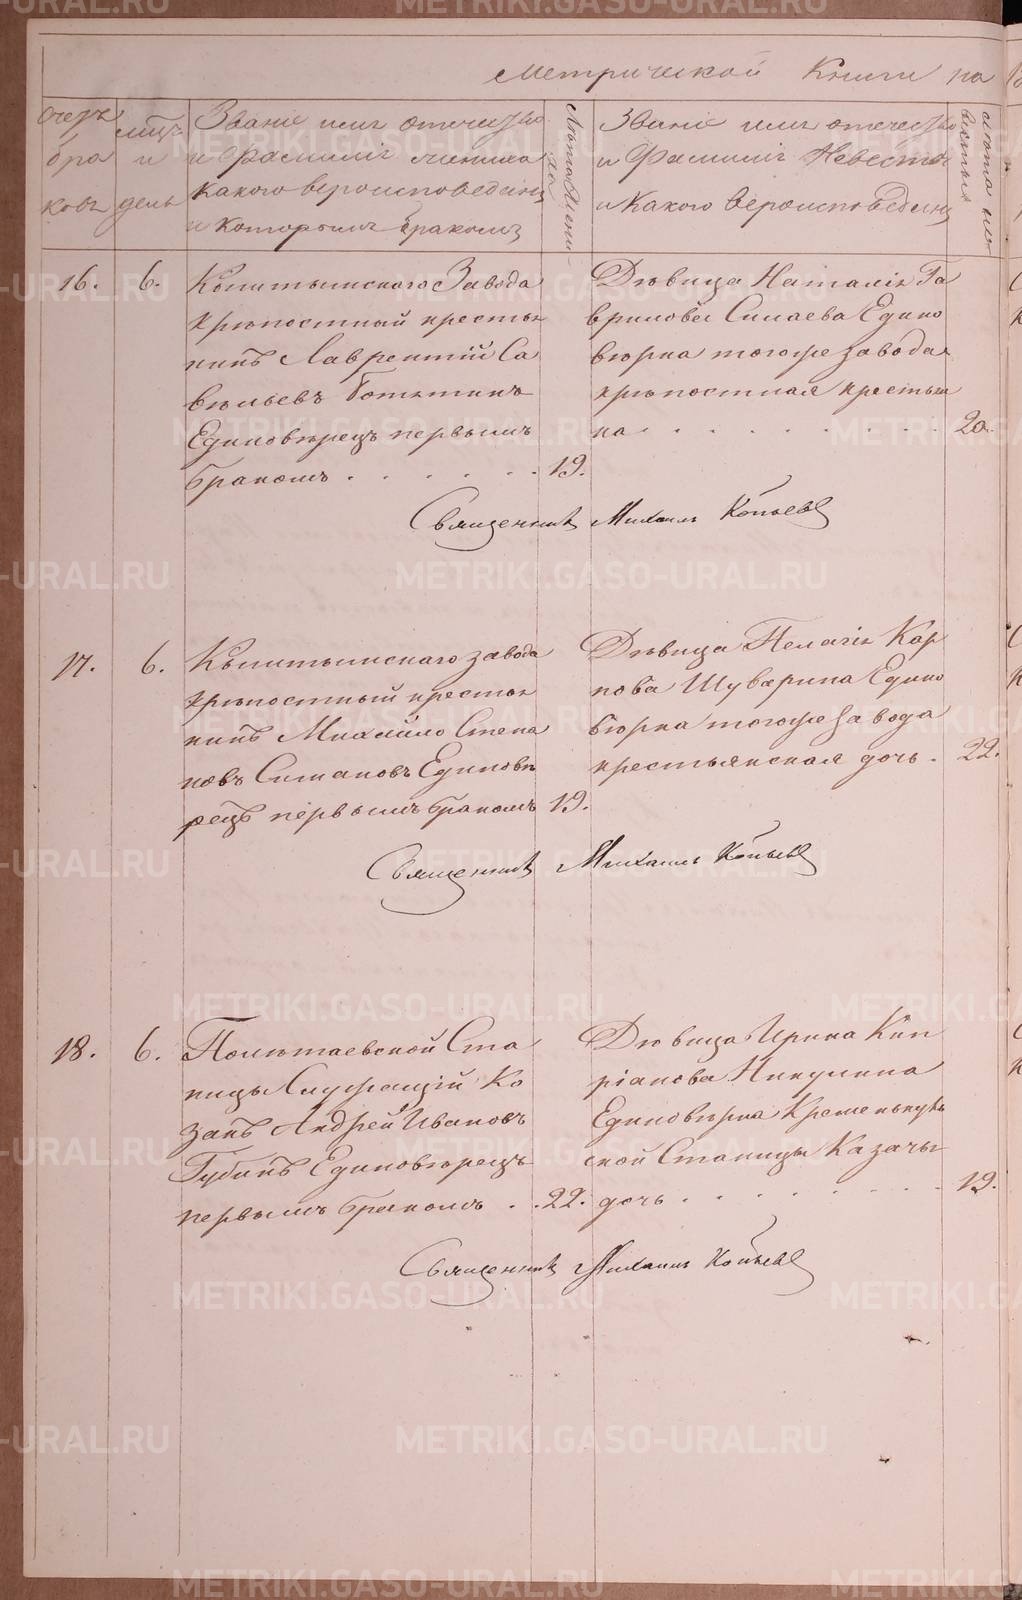 Метрической Книги на
Счетъ браковъ
Мцъ и день
Званіе имя отечество
и Фамилія жениха
какого вероисповеданія
и которымъ бракомъ
Лѣта Жениха
Званіе имя отечество
и Фамилія Невесты
и какого вероисповеданія
16. 6.
Кыштымскаго Завода
крѣпостный крестья
нинъ Лаврентій Са
вельевъ
Единовѣрецъ первымъ
бракомъ . . . . . . 19.
Дѣвица Наталія Га
врилова Силаева Едино
вѣрка тогоже завода
крѣпостная крестьян
ка . . . . . . . . . 20.
Священникъ Михаилъ Копьевъ
17. 6.
Кыштымскаго завода
крѣпостный крестья
нинъ Михайло Степа
новъ Ситановъ Единовѣ
рецъ первымъ бракомъ 19.
Дѣвица Пелагія Кар
пова Шуварина Едино
вѣрка тогоже завода
крестьянская дочь . 22.
Священникъ Михаилъ Копьевъ
18. 6.
Полѣтаевской Ста
ницы Служащій Ко
закъ Андрей Ивановъ
Губинъ Единовѣрецъ
первымъ бракомъ . . 22.
Дѣвица Ирина Кип
ріанова Никулина
Единовѣрка Кременькуль
ской Станицы Казачья
дочь . . . . . . . 19.
Священникъ Михаилъ Копьевъ
METRIKI.GASO-URAL.RU